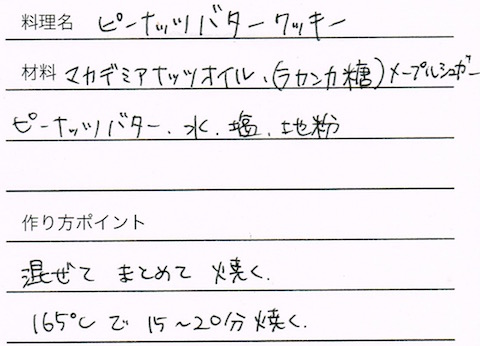 料理名 ピーナッツバタークッキー
材料 マカデミアナッツオイル、(ラカンカ糖)メープルシュガー
ピーナッツバター、水、塩、地粉
作り方ポイント
混ぜて まとめて 焼く.
165℃で 15~20分 焼く.